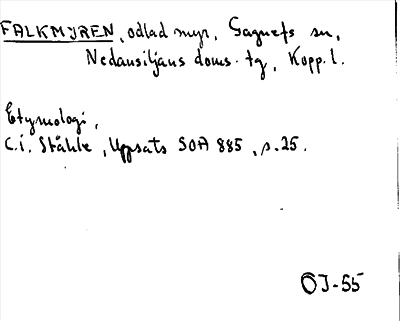 FALKMYREN, odlad myr, Gagnefs sn,
Nedansiljans doms. tg, Kopp. l.
Etymologi,
C.I. Ståhle, Uppsats SOA 885, s. 25.
ÖJ-55